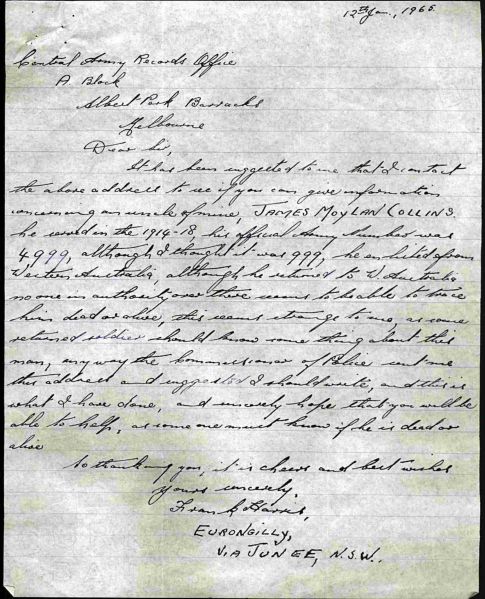 12th Jan., 1965.
Central Army Records Office
A. Block
Albert Park Barracks
Melbourne
Dear Sir,
It has been suggested to me that I contact
the above address to see if you can give information
concerning an uncle of mine, JAMES MOYLAN COLLINS.
he served in the 1914-18 his official Army Number was
4999, although I thought it was 999, he enlisted from
Western Australia, although he returned to W. Australia
no one in authority over there seems to be able to trace
him dead or alive, this seems strange to me, as some
returned soldier should know some thing about this
man, any way the Commissioner of Police sent me
this address and suggested I should write, and this is
what I have done, and sincerely hope that you will be
able to help, as some one must know if he is dead or
alive
So thanking you, it is cheers and best wishes
yours sincerely,
Frank Harris,
EURONGILLY,
VIA JUNEE, N.S.W..